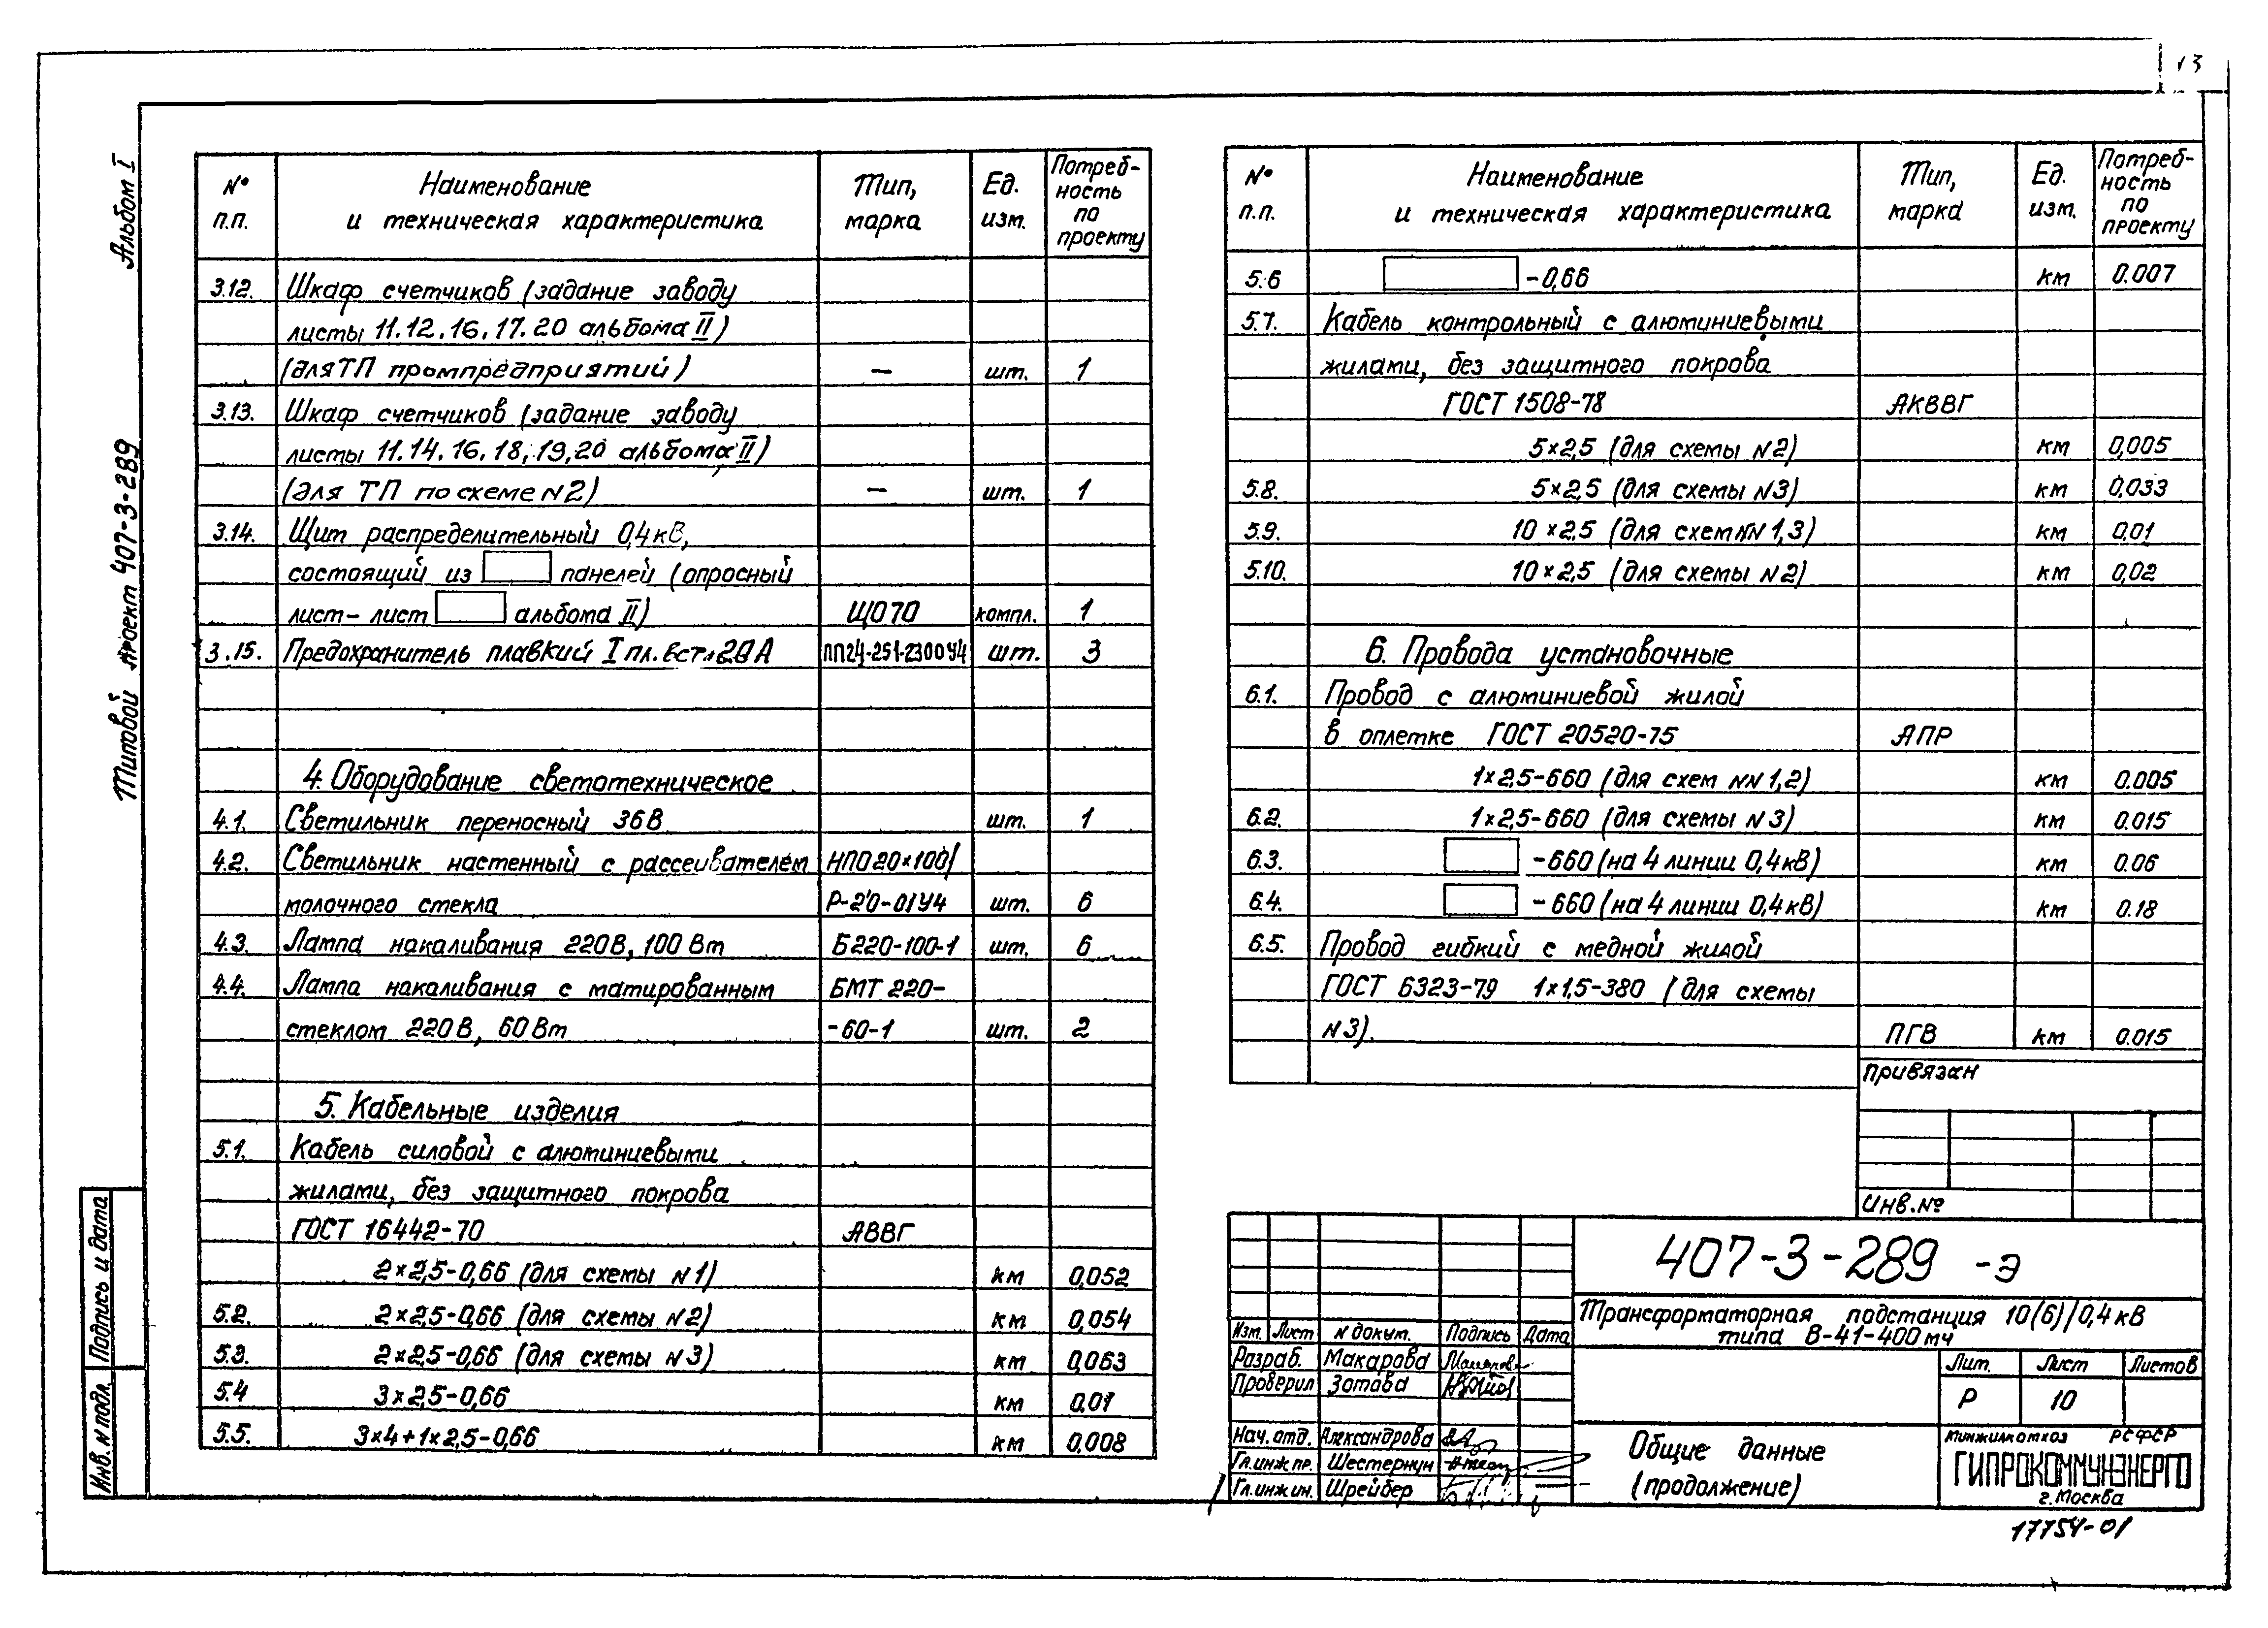 13
Альбом I
Типовой проект 407-3-289
Подпись и дата
Инв. N подл.
№ п.п. Наименование и техническая характеристика Тип, марка Ед. изм. Потребность по проекту
3.12. Шкаф счетчиков (задание заводу
листы 11.12.16.17.20 альбома II)
(для ТП промпредприятий) — шт. 1
3.13. Шкаф счетчиков (задание заводу
листы 11.14.16.18,19,20 альбома II)
(для ТП по схеме N2) — шт. 1
3.14. Щит распределительный 0,4кВ,
состоящий из панелей (опросный
лист-лист альбома II) ЩО70 компл. 1
3.15. Предохранитель плавкий I пл.вст.20А ПП24-251-2300У4 шт. 3
4. Оборудование светотехническое
4.1. Светильник переносный 36В шт. 1
4.2. Светильник настенный с рассеивателем НПО20×100/
молочного стекла Р-20-01У4 шт. 6
4.3. Лампа накаливания 220В, 100Вт Б220-100-1 шт. 6
4.4. Лампа накаливания с матированным БМТ 220-
стеклом 220В, 60Вт -60-1 шт. 2
5. Кабельные изделия
5.1. Кабель силовой с алюминиевыми
жилами, без защитного покрова
ГОСТ 16442-70 АВВГ
2×2,5-0,66 (для схемы N1) км 0,052
5.2. 2×2,5-0,66 (для схемы N2) км 0,054
5.3. 2×2,5-0,66 (для схемы N3) км 0,063
5.4 3×2,5-0,66 км 0,01
5.5. 3×4+1×2,5-0,66 км 0,008
№ п.п. Наименование и техническая характеристика Тип, марка Ед. изм. Потребность по проекту
5.6 -0,66 км 0.007
5.7. Кабель контрольный с алюминиевыми
жилами, без защитного покрова
ГОСТ 1508-78 АКВВГ
5×2,5 (для схемы N2) км 0,005
5.8. 5×2,5 (для схемы N3) км 0,033
5.9. 10×2,5 (для схем NN 1,3) км 0,01
5.10. 10×2,5 (для схемы N2) км 0,02
6. Провода установочные
6.1. Провод с алюминиевой жилой
в оплетке ГОСТ 20520-75 АПР
1×2,5-660 (для схем NN 1,2) км 0.005
6.2. 1×2,5-660 (для схемы N3) км 0.015
6.3. -660 (на 4 линии 0,4кВ) км 0.06
6.4. -660 (на 4 линии 0,4кВ) км 0.18
6.5. Провод гибкий с медной жилой
ГОСТ 6323-79 1×1,5-380 (для схемы
N3). ПГВ км 0.015
Привязан
Инв.№
407-3-289 -Э
Трансформаторная подстанция 10(6)/0,4кВ
типа В-41-400мч
Изм. Лист N докум. Подпись Дата
Разраб. Макарова
Проверил Зотова
Нач. отд. Александрова
Гл.инж.пр. Шестернин
Гл.инжин. Шрейбер
Лит. Лист Листов
Р 10
Общие данные
(продолжение)
Минжилкомхоз РСФСР
ГИПРОКОММУНЭНЕРГО
г.Москва
17754-01